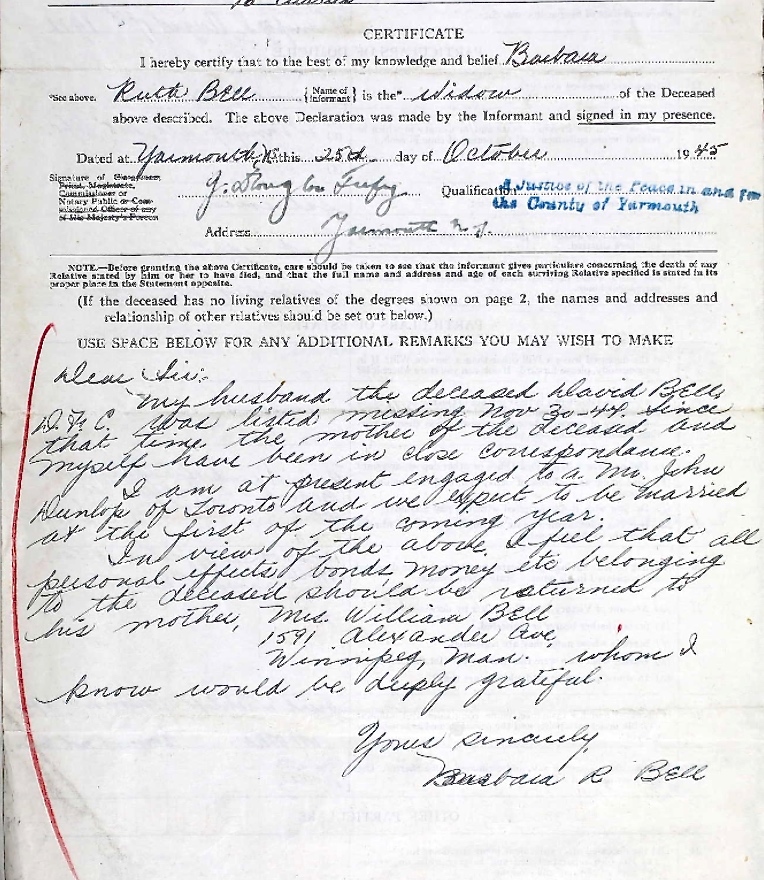 CERTIFICATE
I hereby certify that to the best of my knowledge and belief Barbara
*See above. Ruth Bell {Name of Informant} is the* Widow of the Deceased
above described. The above Declaration was made by the Informant and signed in my presence.
Dated at Yarmouth, N.S. this 25th day of October 1945
Signature of Clergyman,
Priest, Magistrate,
Commissioner or
Notary Public or Com-
missioned Officer of any
of His Majesty's Forces
Qualification A Justice of the Peace in and for
the County of Yarmouth
Address Yarmouth N.S.
NOTE.—Before granting the above Certificate, care should be taken to see that the informant gives particulars concerning the death of any
Relative stated by him or her to have died, and that the full name and address and age of each surviving Relative specified is stated in its
proper place in the Statement opposite.
(If the deceased has no living relatives of the degrees shown on page 2, the names and addresses and
relationship of other relatives should be set out below.)
USE SPACE BELOW FOR ANY ADDITIONAL REMARKS YOU MAY WISH TO MAKE
Dear Sir:-
My husband the deceased David Bell,
D.F.C. was listed missing Nov 30-44. Since
that time the mother of the deceased and
myself have been in close correspondance.
I am at present engaged to a Mr. John
Dunlop of Toronto and we expect to be married
at the first of the coming year.
In view of the above, I feel that all
personal effects, bonds, money etc belonging
to the deceased should be returned to
his mother, Mrs. William Bell
1591 Alexander Ave,
Winnipeg, Man. whom I
know would be deeply grateful.
Yours sincerely,
Barbara R Bell